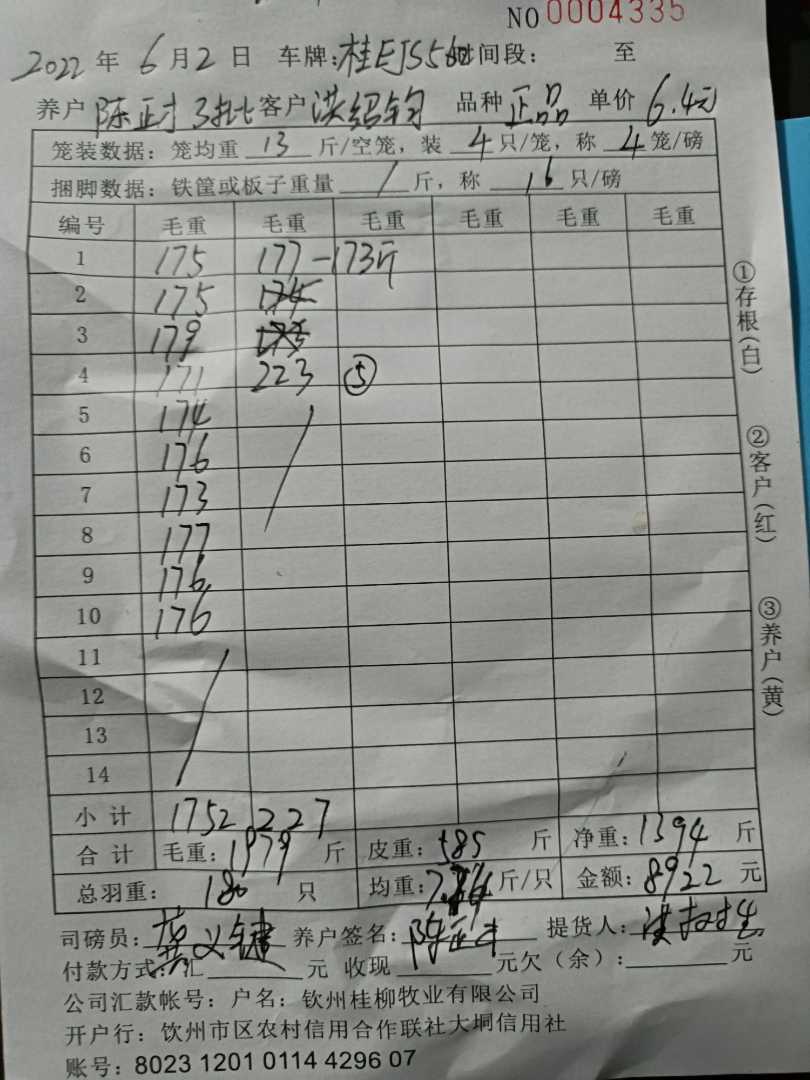 NO 0004335
2022 年 6 月 2 日 车牌:桂EJS560 时间段: 至
养户 陈正才 3批 客户 洪绍钧 品种 正品 单价 6.4元
笼装数据: 笼均重 13 斤/空笼, 装 4 只/笼, 称 4 笼/磅
捆脚数据: 铁筐或板子重量 / 斤, 称 16 只/磅
编号 毛重 毛重 毛重 毛重 毛重 毛重
1 175 177-173斤
2 175 174
3 179 173
4 171 223 ⑤
5 174
6 176
7 173
8 177
9 176
10 176
11
12
13
14
小计 1752 227
合计 毛重: 1979 斤 皮重: 585 斤 净重: 1394 斤
总羽重: 180 只 均重: 斤/只 金额: 8922 元
司磅员: 义键 养户签名: 陈正才 提货人:
付款方式: 汇 元 收现 元欠(余): 元
公司汇款帐号: 户名: 钦州桂柳牧业有限公司
开户行: 钦州市区农村信用合作联社大垌信用社
账号: 8023 1201 0114 4296 07
①存根(白)
②客户(红)
③养户(黄)